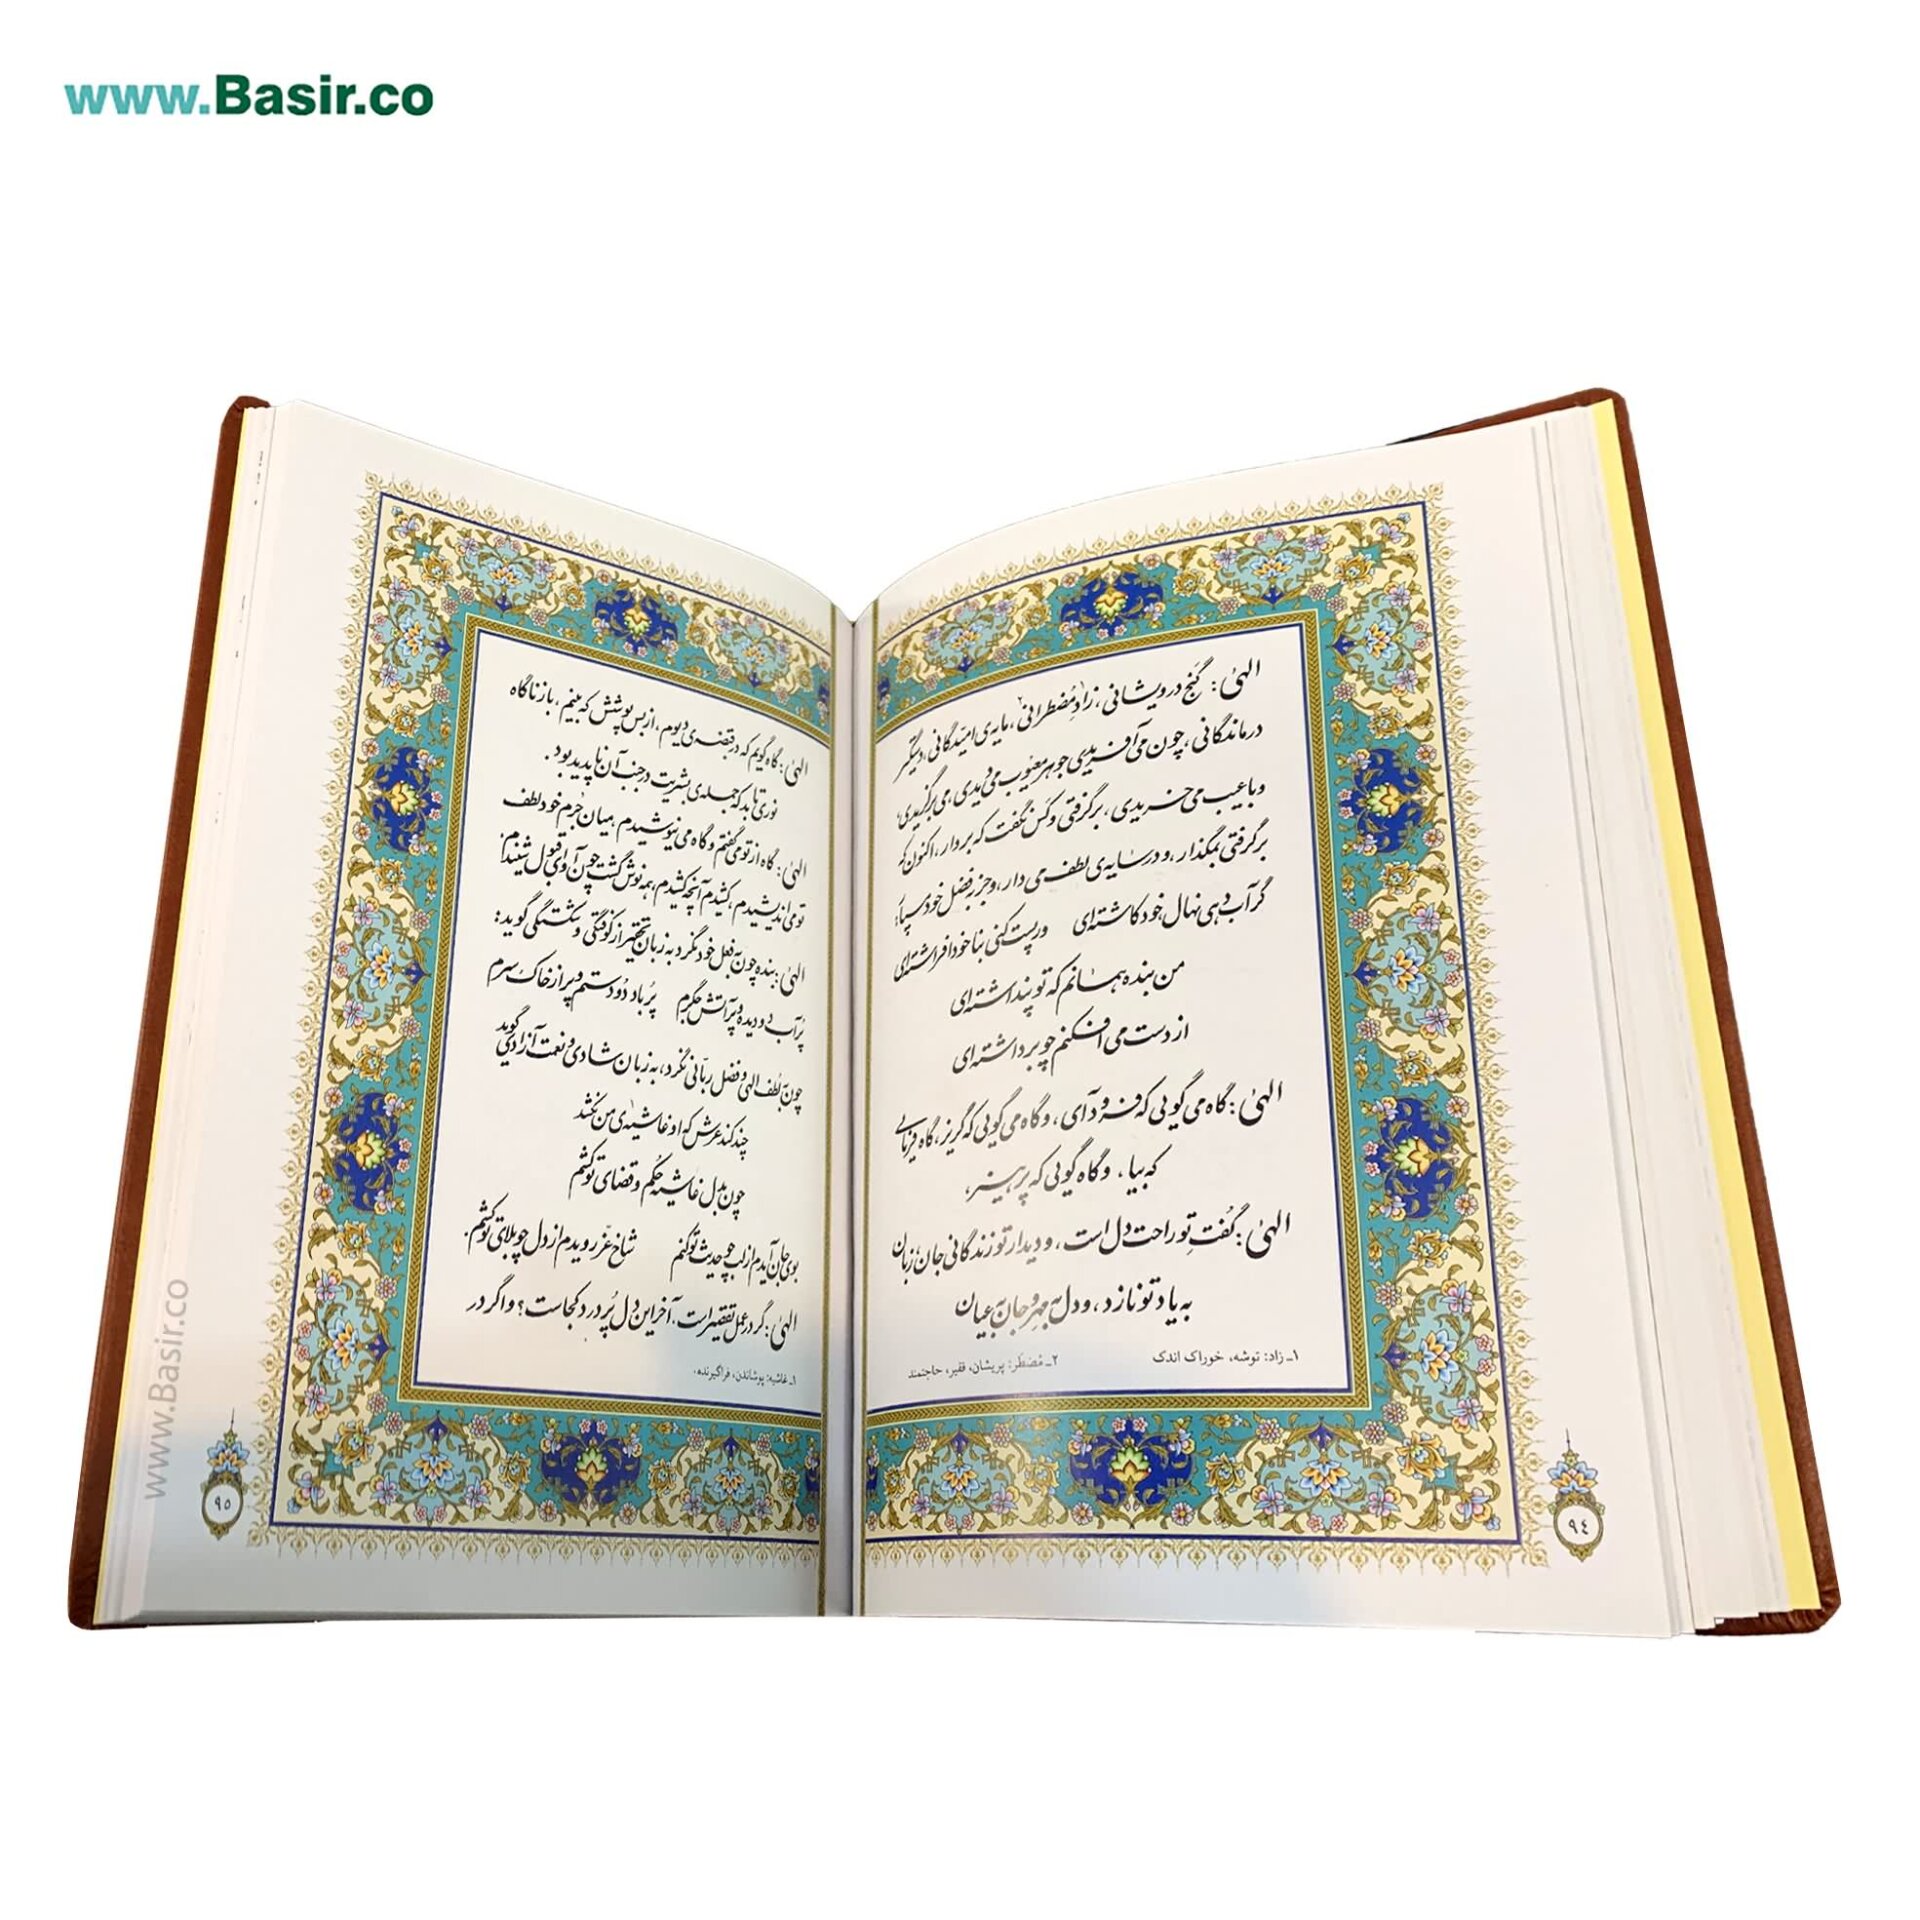 www.Basir.co
الهی: گنج درویشانی، زادِ۱ مُضطرانی۲، مایه‌ی امیدگانی، دستگیر
درماندگانی، چون می‌آفریدی جوهر معیوب می‌دیدی، می‌برگزیدی،
و با عیب می‌خریدی، برگرفتی و کس نگفت که بردار، اکنون که
برگرفتی بمگذار، و در سایه‌ی لطف می‌دار، و جز به فضل خود مسپار:
گر آب دهی نهال خود کاشته‌ای ور پست کنی بنا خود افراشته‌ای
من بنده همانم که تو پنداشته‌ای
از دست می‌افکنم چو برداشته‌ای
الهی: گاه می‌گویی که فرود آی، و گاه می‌گویی که گریز، گاه فرمایی
که بیا، و گاه گویی که پرهیز،
الهی: گفتِ تو راحت دل است، و دیدار تو زندگانی جان، زبان
به یاد تو نازد، و دل به مهر و جان به عیان
۱ـ زاد: توشه، خوراک اندک ۲ـ مُضطَر: پریشان، فقیر، حاجتمند
۹٤
الهی: گاه گویم که در قبضه‌ی دیوم، از بس پوشش که بینم، باز ناگاه
نوری تابد که جمله‌ی بشریت در جنب آن ناپدید بود.
الهی: گاه از تو می‌گفتم و گاه می‌نیوشیدم، میان جرم خود لطف
تو می‌اندیشیدم، کشیدم آنچه کشیدم، همه نوش گشت چون آوای قبول شنیدم.
الهی: بنده چون به فعل خود نگرد به زبان تحقیر از کوفتگی و شکستگی گوید:
پُر آب دو دیده و پر آتش جگرم پُر باد دو دستم و پر از خاک سرم
چون به لُطف الهی و فضل ربّانی نگرد، به زبان شادی و نعمت آزادی گوید
چند کند عرش که او غاشیه‌ی۱ من نکشد
چون بدل غاشیه حُکم و قضای تو کشم
بوی جان آیدم از لب چو حدیث تو کنم شاخ عزّ رویدم از دل چو بلای تو کشم.
الهی: گر در عمل تقصیر است، آخر این دل پُر درد کجاست؟ و اگر در
۱ـ غاشیه: پوشاندن، فراگیرنده.
۹٥
www.Basir.co